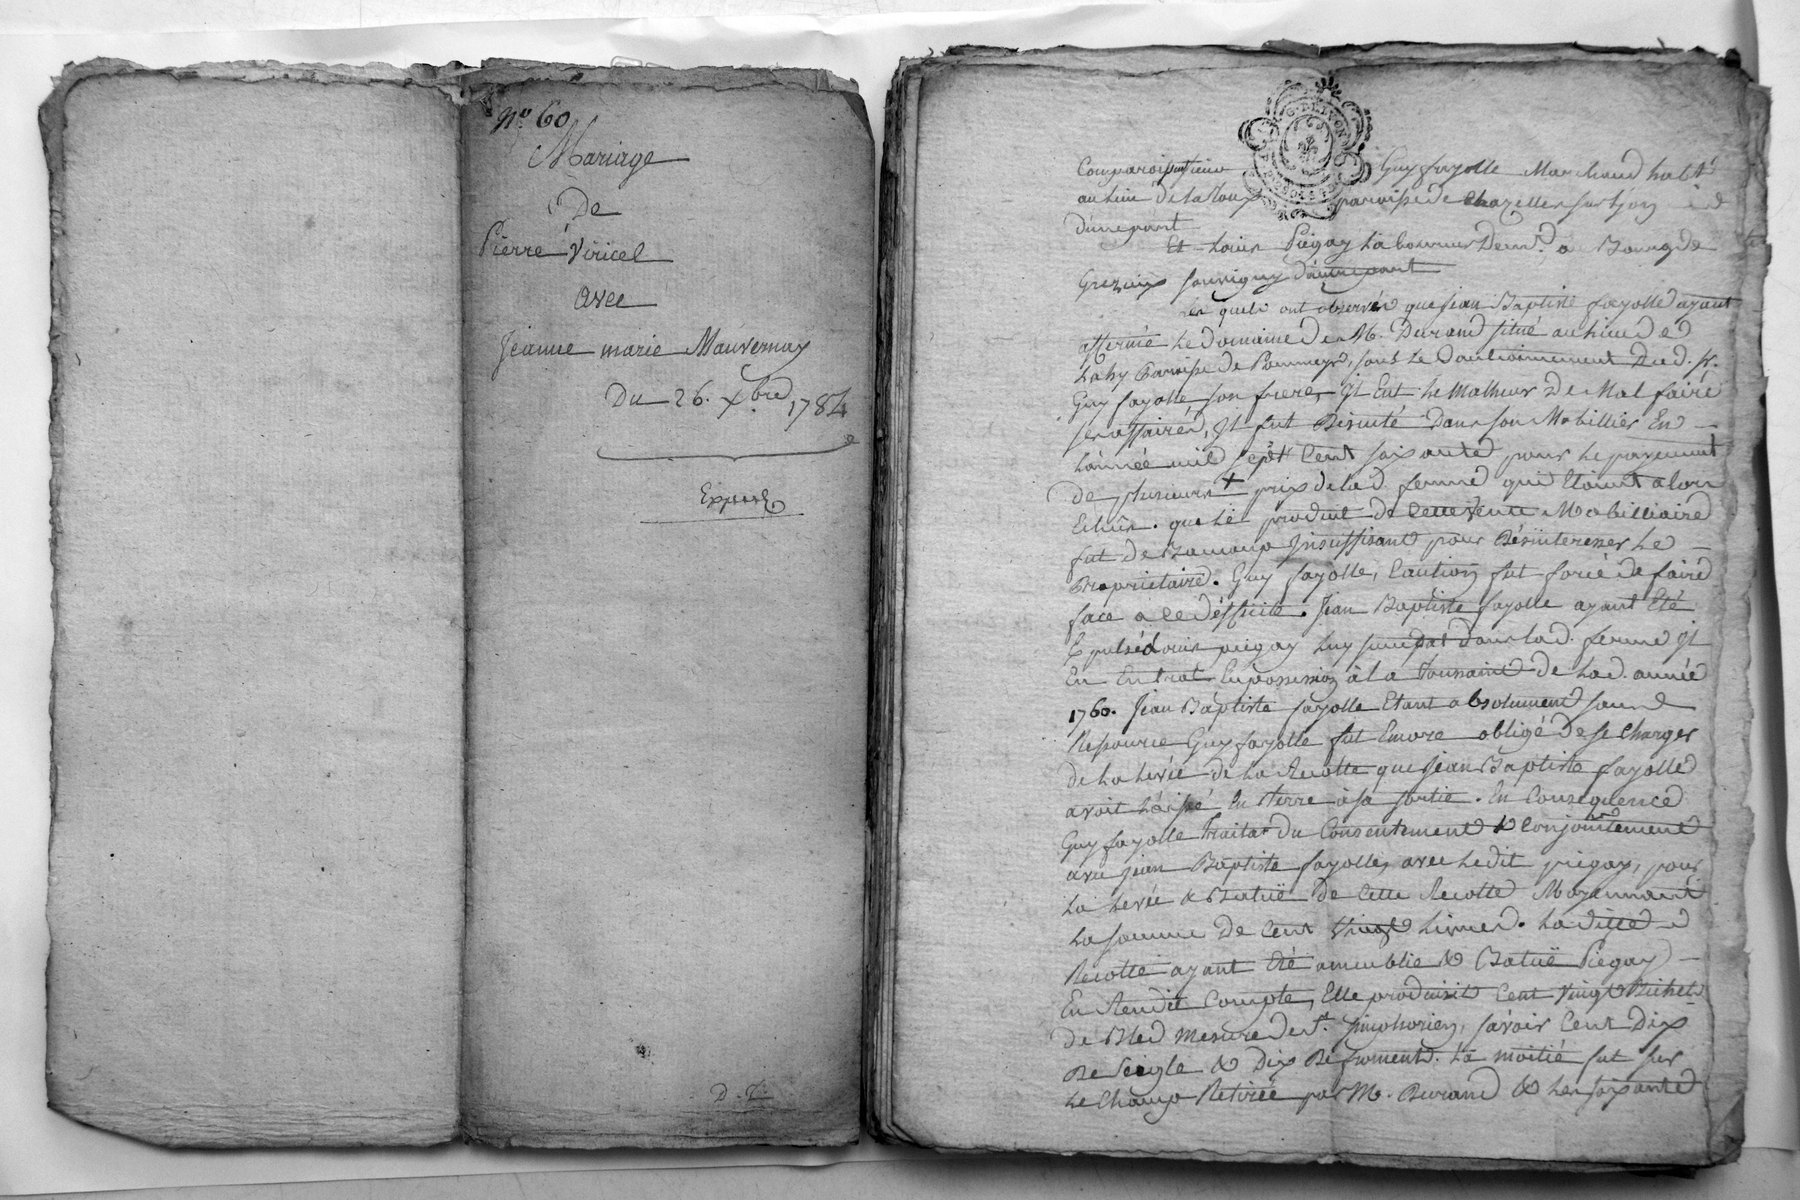 No 60
Mariage
De
Pierre Viricel
avec
Jeanne marie Mauvernay
Du 26. Xbre 1784
Expedié
D. fr.
G. DE LYON
Comparoissent sieur Guy fayolle Marchand habt
au Lieu de la Roux paroisse de Chazelles sur Lyon
d'une part
Et Louis Piegay Laboureur Demt. a Bourg de
Grezieux Souvigny d'autre part
Les quels ont observés que jean Baptiste fayolle ayant
affermé Le domaine de M. Durand situé au Lieu de
Lahy Paroisse de Pommeys, sous Le Cautionnement Dud. sr.
Guy fayolle son frere, Il Eut Le Malheur De Mal faire
ses affaires, Il fut Discuté Dans son Mobillier En
L'année mil sept Cent soixante pour Le payement
de plusieurs + prix de lad. ferme qui Etoient alors
Echus. que Le produit de Cette vente Mobilliaire
fut de Baucoup Insuffisant pour Désinteresser Le
Proprietaire. Guy fayolle, Caution fut forcé de faire
face a ce déffficite. Jean Baptiste fayolle ayant Eté
Expulsé Louis piegay Luy succedat dans Lad. ferme Il
En Entrat En possession à La Toussaint de Lad. année
1760. Jean Baptiste fayolle Etant absolument sans
Ressource Guy fayolle fut Encore obligé De se Charger
de La Levée de La Recolte que Jean Baptiste fayolle
avoit Laissé En Terre à sa sortie. En Consequence
Guy fayolle Traitat Du Consentement & Conjointement
avec jean Baptiste fayolle, avec Ledit piegay, pour
La Levée & Battuë de Cette Recolte Moyennant
La somme De Cent Vingt Livres. La ditte
Recolte ayant Eté ameublie & Batuë Piegay
En Rendit Compte, Elle produisit Cent Vingt Bichets
de Bled Mesure de St. Simphorien, savoir Cent Dix
De Seigle & Dix De froment. La moitié fut sur
Le Champ Retirée par M. Durand & Les soixante